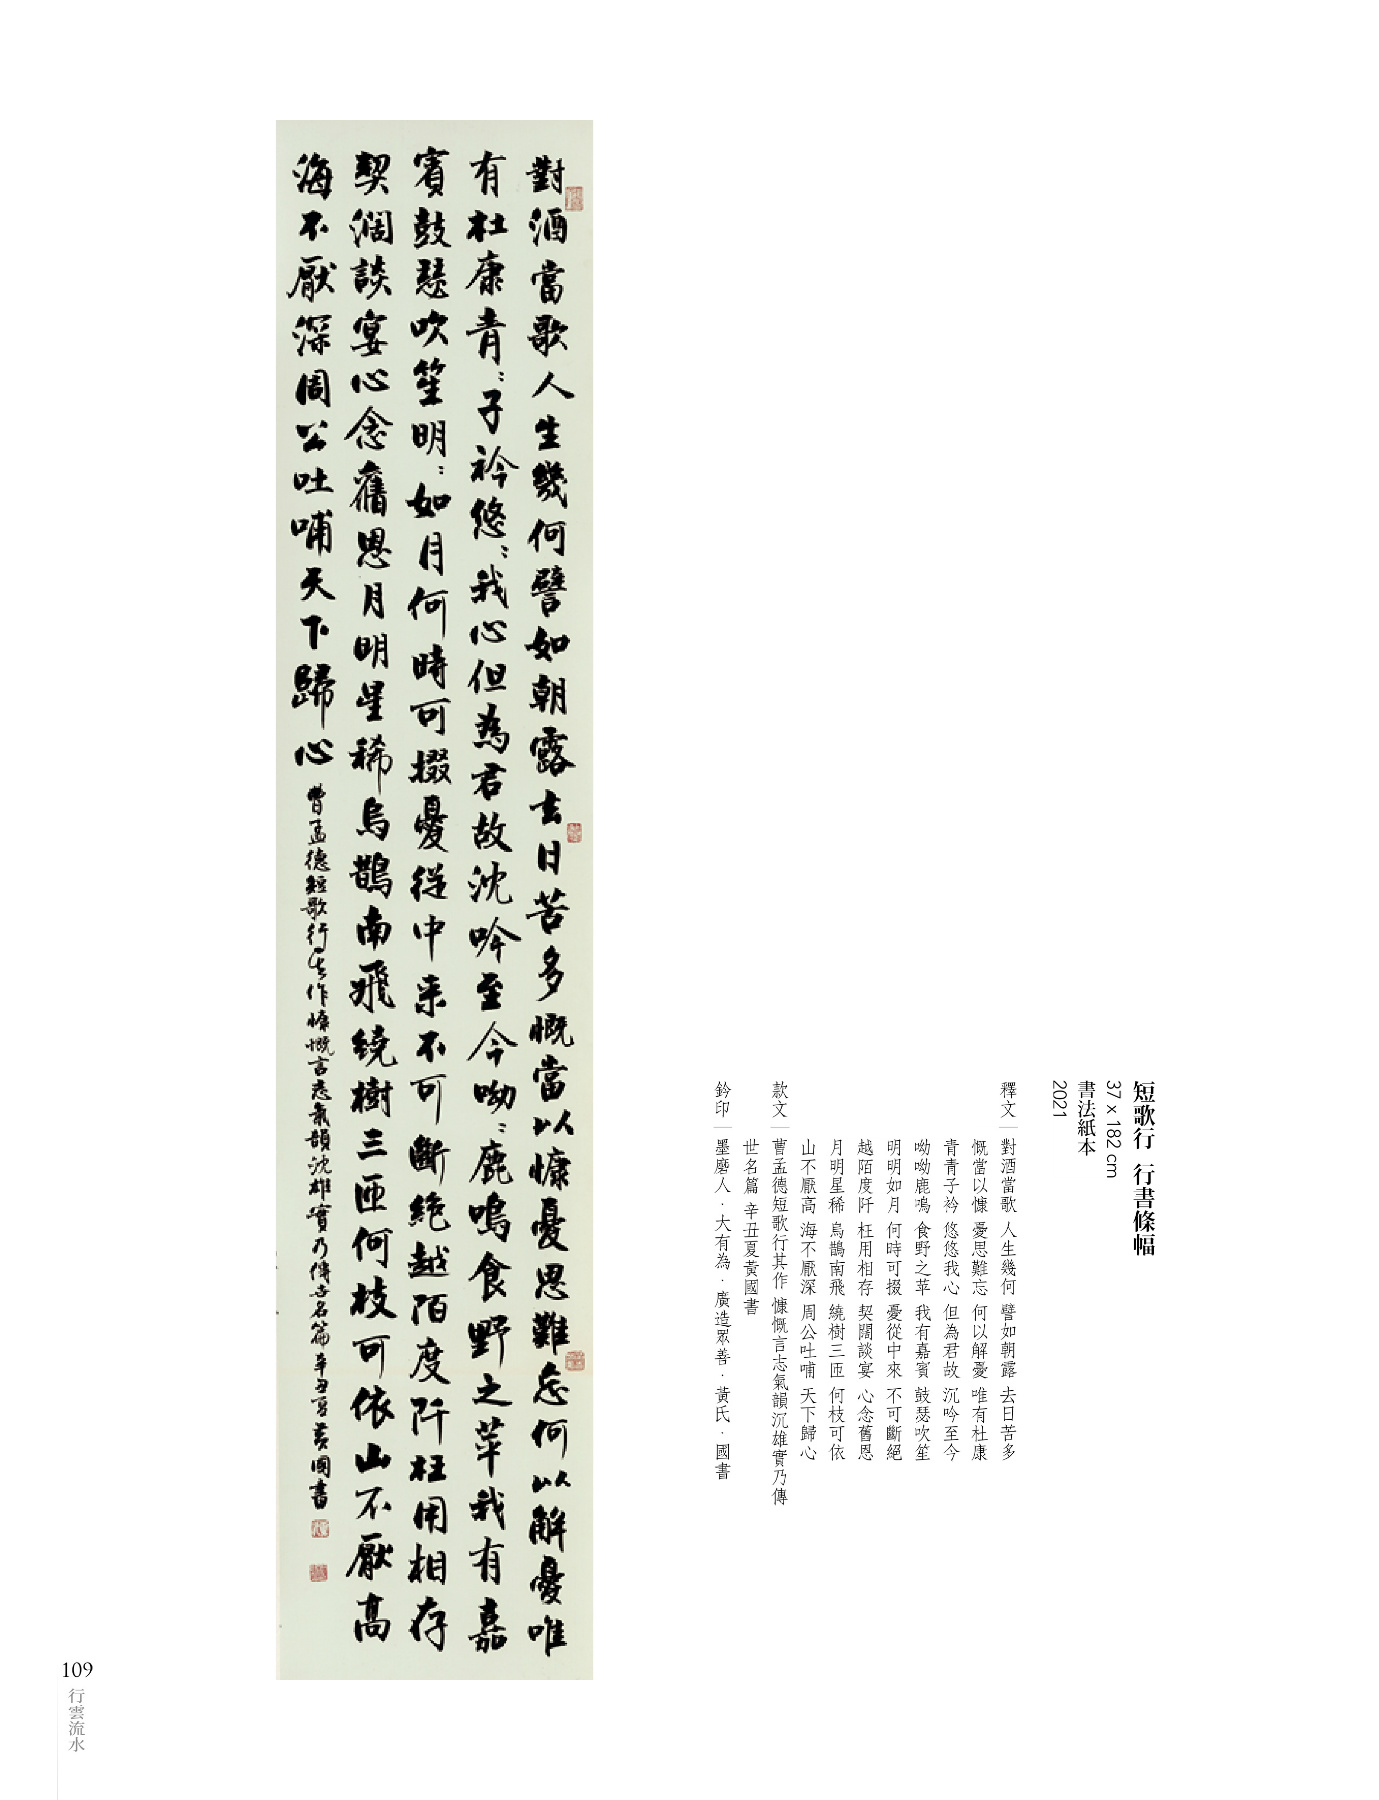 短歌行 行書條幅
37 x 182 cm
書法紙本
2021
釋文 對酒當歌 人生幾何 譬如朝露 去日苦多
慨當以慷 憂思難忘 何以解憂 唯有杜康
青青子衿 悠悠我心 但為君故 沉吟至今
呦呦鹿鳴 食野之苹 我有嘉賓 鼓瑟吹笙
明明如月 何時可掇 憂從中來 不可斷絕
越陌度阡 枉用相存 契闊談宴 心念舊恩
月明星稀 烏鵲南飛 繞樹三匝 何枝可依
山不厭高 海不厭深 周公吐哺 天下歸心
款文 曹孟德短歌行其作 慷慨言志氣韻沉雄實乃傳
世名篇 辛丑夏黃國書
鈐印 墨磨人．大有為．廣造眾善．黃氏．國書
對酒當歌人生幾何譬如朝露去日苦多慨當以慷憂思難忘何以解憂唯
有杜康青：子衿悠：我心但為君故沈吟至今呦：鹿鳴食野之苹我有嘉
賓鼓瑟吹笙明：如月何時可掇憂從中来不可斷絕越陌度阡枉用相存
契濶談宴心念舊恩月明星稀烏鵲南飛繞樹三匝何枝可依山不厭高
海不厭深周公吐哺天下歸心
曹孟德短歌行其作慷慨言志氣韻沈雄實乃傳世名篇辛丑夏黃國書
109
行雲流水